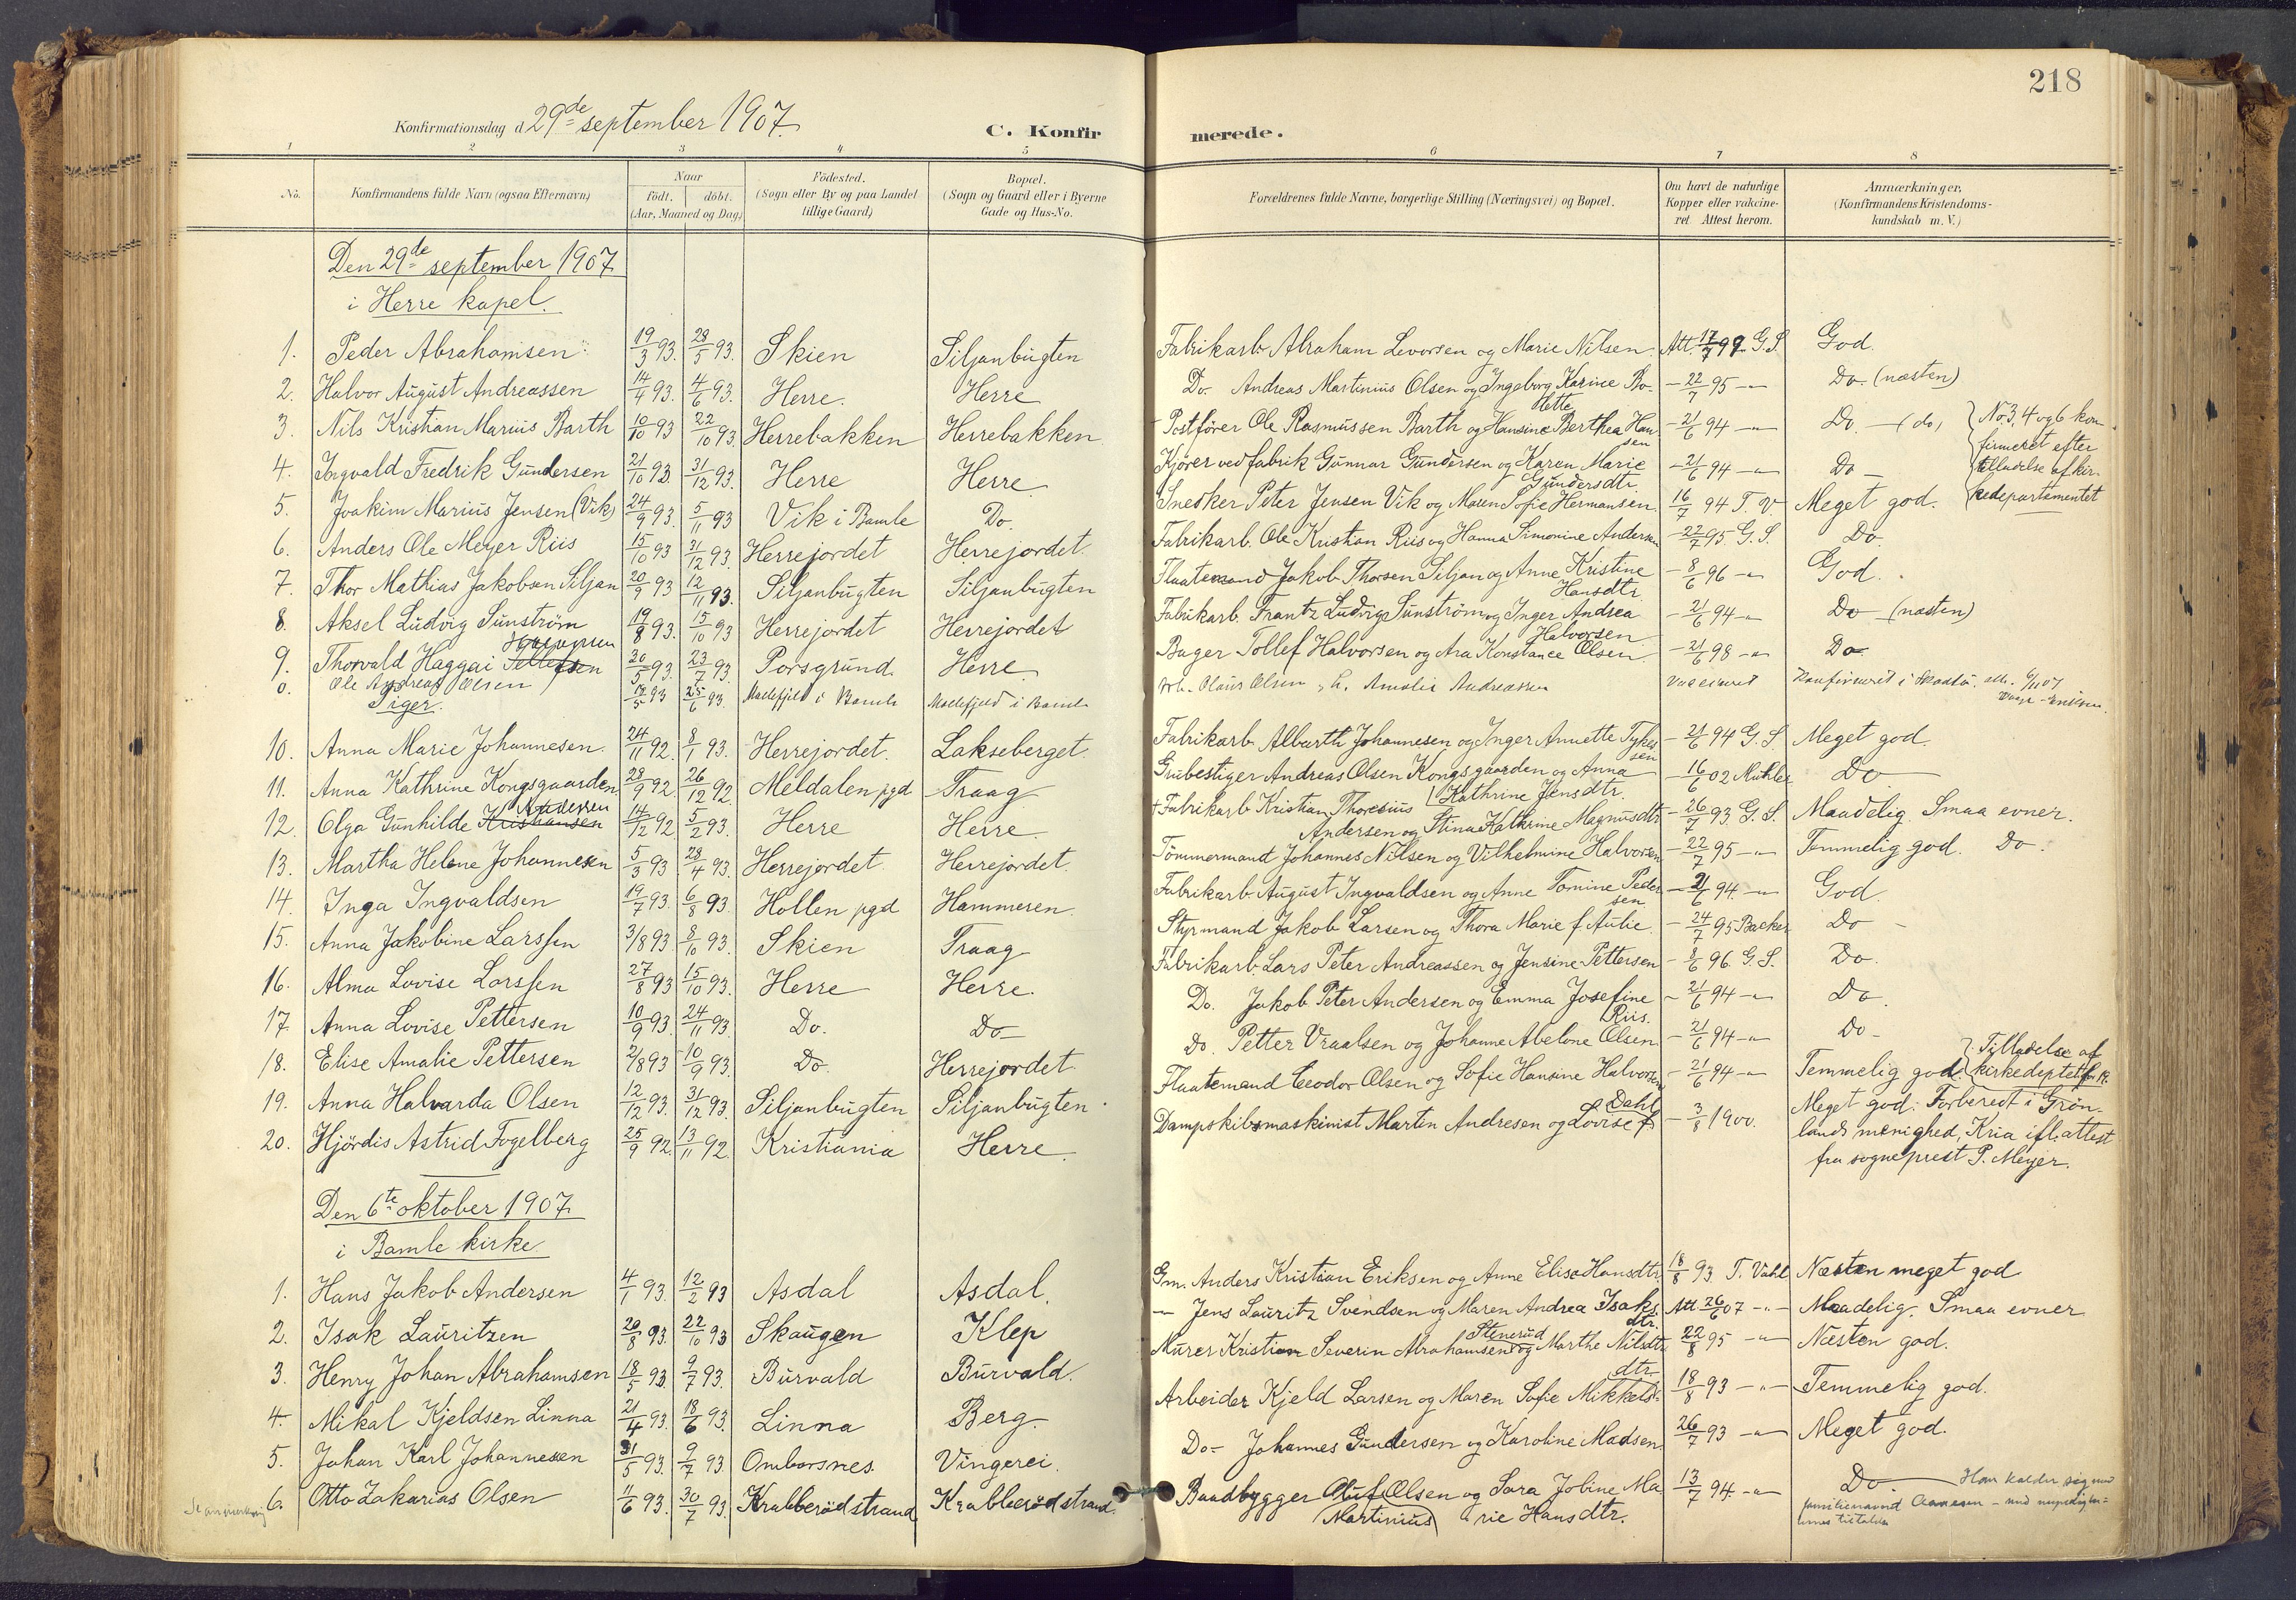 218
Konfirmationsdag d. 29de september 1907.
C. Konfirmerede.
1 2 3 4 5 6 7 8
No. | Konfirmandens fulde Navn (ogsaa Efternavn) | Naar födt. döbt. (Aar, Maaned og Dag) | Födested. (Sogn eller By og paa Landet tillige Gaard) | Bopæl. (Sogn og Gaard eller i Byerne Gade og Hus-No. | Forældrenes fulde Navne, borgerlige Stilling (Næringsvei) og Bopæl. | Om havt de naturlige Kopper eller vakcineret. Attest herom. | Anmærkninger. (Konfirmandens Kristendomskundskab m. V.)
Den 29de september 1907
i Herre kapel.
1. Peder Abrahamsen 19/3 93. 28/5 93. Skien Siljanbugten Fabrikarb. Abraham Levorsen og Marie Nilsen. Att. 17/7 99 G.S. God.
2. Halvor August Andreassen 14/4 93. 4/6 93. Herre. Herre Do. Andreas Martinius Olsen og Ingeborg Karine Bo- - 22/7 95 -"- Do. (næsten)
3. Nils Kristian Marius Barth 10/10 93 22/10 93 Herrebakken Herrebakken Postfører Ole Rasmussen Barth og Hansine Berthea Hansen - 21/6 94 -"- Do. - (do) No 3, 4 og 6 konfirmeret efter tilladelse af kirkedepartementet
4. Ingvald Fredrik Gundersen 21/10 93. 31/12 93. Herre Herre Kjører ved fabrik Gunnar Gundersen og Karen Marie Gundersdtr. - 21/6 94 -"- Do -
5. Joakim Marius Jensen (Vik) 24/9 93. 5/11 93 Vik i Bamle Do. Snedker Peter Jensen Vik og Maren Sofie Hermansen. 16/7 94 T.V. Meget god.
6. Anders Ole Meyer Riis 15/10 93 31/12 93. Herrejordet Herrejordet. Fabrikarb. Ole Kristian Riis og Hanna Simonine Andersen - 22/7 95. G.S. Do.
7. Thor Mathias Jakobsen Siljan 20/9 93 12/11 93. Siljanbugten Siljanbugten Flaatemand Jakob Thorsen Siljan og Anne Kristine Hansdtr. - 8/6 96 -"- God.
8. Aksel Ludvig Sunström 19/8 93. 15/10 93 Herrejordet Herrejordet Fabrikarb. Frantz Ludvig Sunström og Inger Andrea Halvorsen - 21/6 94 -"- Do - (næsten)
9. Thorvald Haggai Tollefsen 30/5 93. 23/7 93. Porsgrund. Herre Bager Tollef Halvorsen og Ara Konstance Olsen. - 21/6 98 -"- Do
0. Ole Andreas Olsen 93 25/6 93. i Bamle i Bamle Olaus Olsen Amalie Andreassen vaccineret Konfirmeret i
Piger.
10. Anna Marie Johannesen. 24/11 92. 8/1 93. Herrejordet. Lakseberget. Fabrikarb. Albarth Johannesen og Inger Annette Tykesen - 21/6 94 G.S. Meget god.
11. Anna Kathrine Kongsgaarden 28/9 92. 26/12 92. Meldalen pgd Traag Grubestiger Andreas Olsen Kongsgaarden og Anna Kathrine Jensdtr. - 16/6 02 Mühler Do
12. Olga Gunhilde Kristiansen Andersen 14/12 92 5/2 93. Herre Herre. Fabrikarb. Kristian Thoresius Andersen og Stina Kathrine Magnusdtr - 26/7 93. G.S. Maadelig. Smaa evner.
13. Martha Helene Johannesen 5/3 93 28/4 93. Herrejordet. Herrejordet. Tömmermand Johannes Nilsen og Vilhelmine Halvorsen - 22/7 95 -"- Temmelig god. Do -
14. Inga Ingvaldsen 19/7 93. 6/8 93. Hollen pgd Hammeren. Fabrikarb. August Ingvaldsen og Anne Tomine Pedersen - 21/6 94. -"- God.
15. Anna Jakobine Larssen 3/8 93 8/10 93. Skien Traag Styrmand Jakob Larsen og Thora Marie f. Aulie. - 24/7 95 Backer Do
16. Alma Lovise Larssen 27/8 93 15/10 93. Herre Herre. Fabrikarb. Lars Peter Andreassen og Jensine Pettersen - 8/6 96. G.S. Do.
17. Anna Lovise Pettersen 10/9 93. 24/11 93. Do. Do Do. Jakob Peter Andersen og Emma Josefine Riis. - 21/6 94 -"- Do.
18. Elise Amalie Pettersen 2/8 93 10/9 93. Do. Herrejordet Do. Petter Vraalsen og Johanne Abelone Olsen - 21/6 94 -"- Do -
19. Anna Halvarda Olsen 12/12 93. 31/12 93. Siljanbugten Siljanbugten Flaatemand Ceodor Olsen og Sofie Hansine Halvorsen - 21/6 94 -"- Temmelig god. Tilladelse af kirkedeptet
20. Hjördis Astrid Fogelberg 25/9 92. 13/11 92. Kristiania Herre. Dampskibsmaskinist Martin Andresen og Lovise f. Dahl - 3/8 1900. Meget god. Forberedt i Grönlands menighed, Kria ifl. attest fra sogneprest P. Meyer.
Den 6te oktober 1907
i Bamle kirke.
1. Hans Jakob Andersen 4/1 93. 12/2 93 Asdal Asdal. Gm. Anders Kristian Eriksen og Anne Elise Hansdtr. 18/8 93 T. Vahl Næsten meget god
2. Isak Lauritzen 20/8 93. 22/10 93 Skaugen Klep -"- Jens Lauritz Svendsen og Maren Andrea Isaksdtr. Att. 26/6 07 -"- Maadelig. Smaa evner
3. Henry Johan Abrahamsen 18/5 93. 9/7 93. Burvald Burvald. Murer Kristian Severin Abrahamsen Stenerud og Marthe Nilsdtr 22/8 95 -"- Næsten god.
4. Mikal Kjeldsen Linna 21/4 93. 18/6 93. Linna Berg. Arbeider Kjeld Larsen og Maren Sofie Mikkelsdtr 18/8 93 -"- Temmelig god.
5. Johan Karl Johannesen 31/5 93. 9/7 93. Omborsnes Vingerei. Do - Johannes Gundersen og Karoline Madsen 26/7 93 -"- Meget god.
6. Otto Zakarias Olsen 11/6 93. 30/7 93. Krabberödstrand Krabberödstrand. Baadbygger Oluf Martinius Olsen og Sara Joline Marie Hansdtr. 13/7 94. -"- Do. Han kalder sig med familienavnet Aanesen